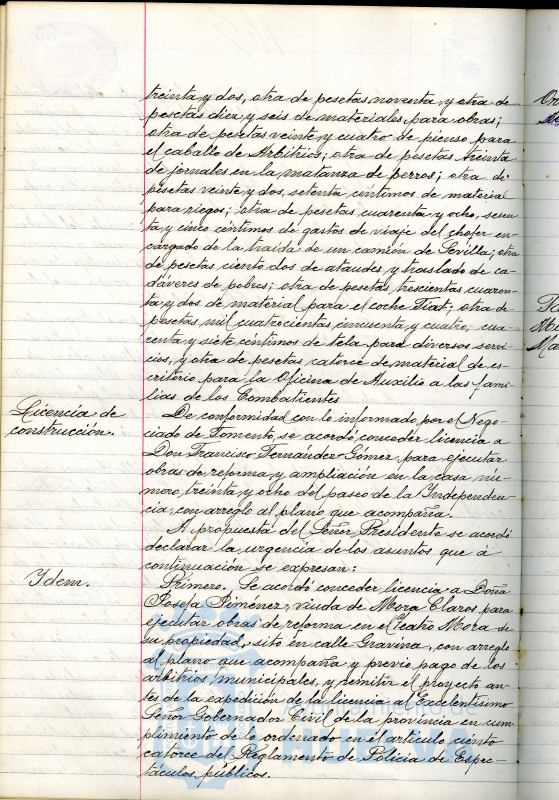 treinta y dos, otra de pesetas noventa y otra de
pesetas diez y seis de materiales para obras;
otra de pesetas veinte y cuatro de pienso para
el caballo de Arbitrios; otra de pesetas treinta
de jornales en la matanza de perros; otra de
pesetas veinte y dos, setenta céntimos de material
para riegos; otra de pesetas cuarenta y ocho, sesen-
ta y cinco céntimos de gastos de viaje del chófer en-
cargado de la traida de un camión de Sevilla; otra
de pesetas ciento dos de ataudes y traslado de ca-
dáveres de pobres; otra de pesetas trescientas cuaren-
ta y dos de material para el coche Fiat; otra de
pesetas mil cuatrocientas cincuenta y cuatro, cua-
renta y siete céntimos de tela para diversos servi-
cios, y otra de pesetas catorce de material de es-
critorio para la Oficina de Auxilio a las fami-
lias de los Combatientes
Licencia de
construcción.
De conformidad con lo informado por el Nego-
ciado de Fomento, se acordó conceder licencia a
Don Francisco Fernández Gómez para ejecutar
obras de reforma y ampliación en la casa nú-
mero treinta y ocho del paseo de la Independen-
cia, con arreglo al plano que acompaña.
A propuesta del Señor Presidente se acordó
declarar la urgencia de los asuntos que a
continuación se expresan:
Idem.
Primero. Se acordó conceder licencia a Doña
Josefa Jimenez, viuda de Mora Claros para
ejecutar obras de reforma en el Teatro Mora de
su propiedad, sito en calle Gravina, con arreglo
al plano que acompaña y previo pago de los
arbitrios municipales, y remitir el proyecto an-
tes de la expedición de la licencia al Excelentísimo
Señor Gobernador Civil de la provincia en cum-
plimiento de lo ordenado en el artículo ciento
catorce del Reglamento de Policía de Espec-
táculos públicos.